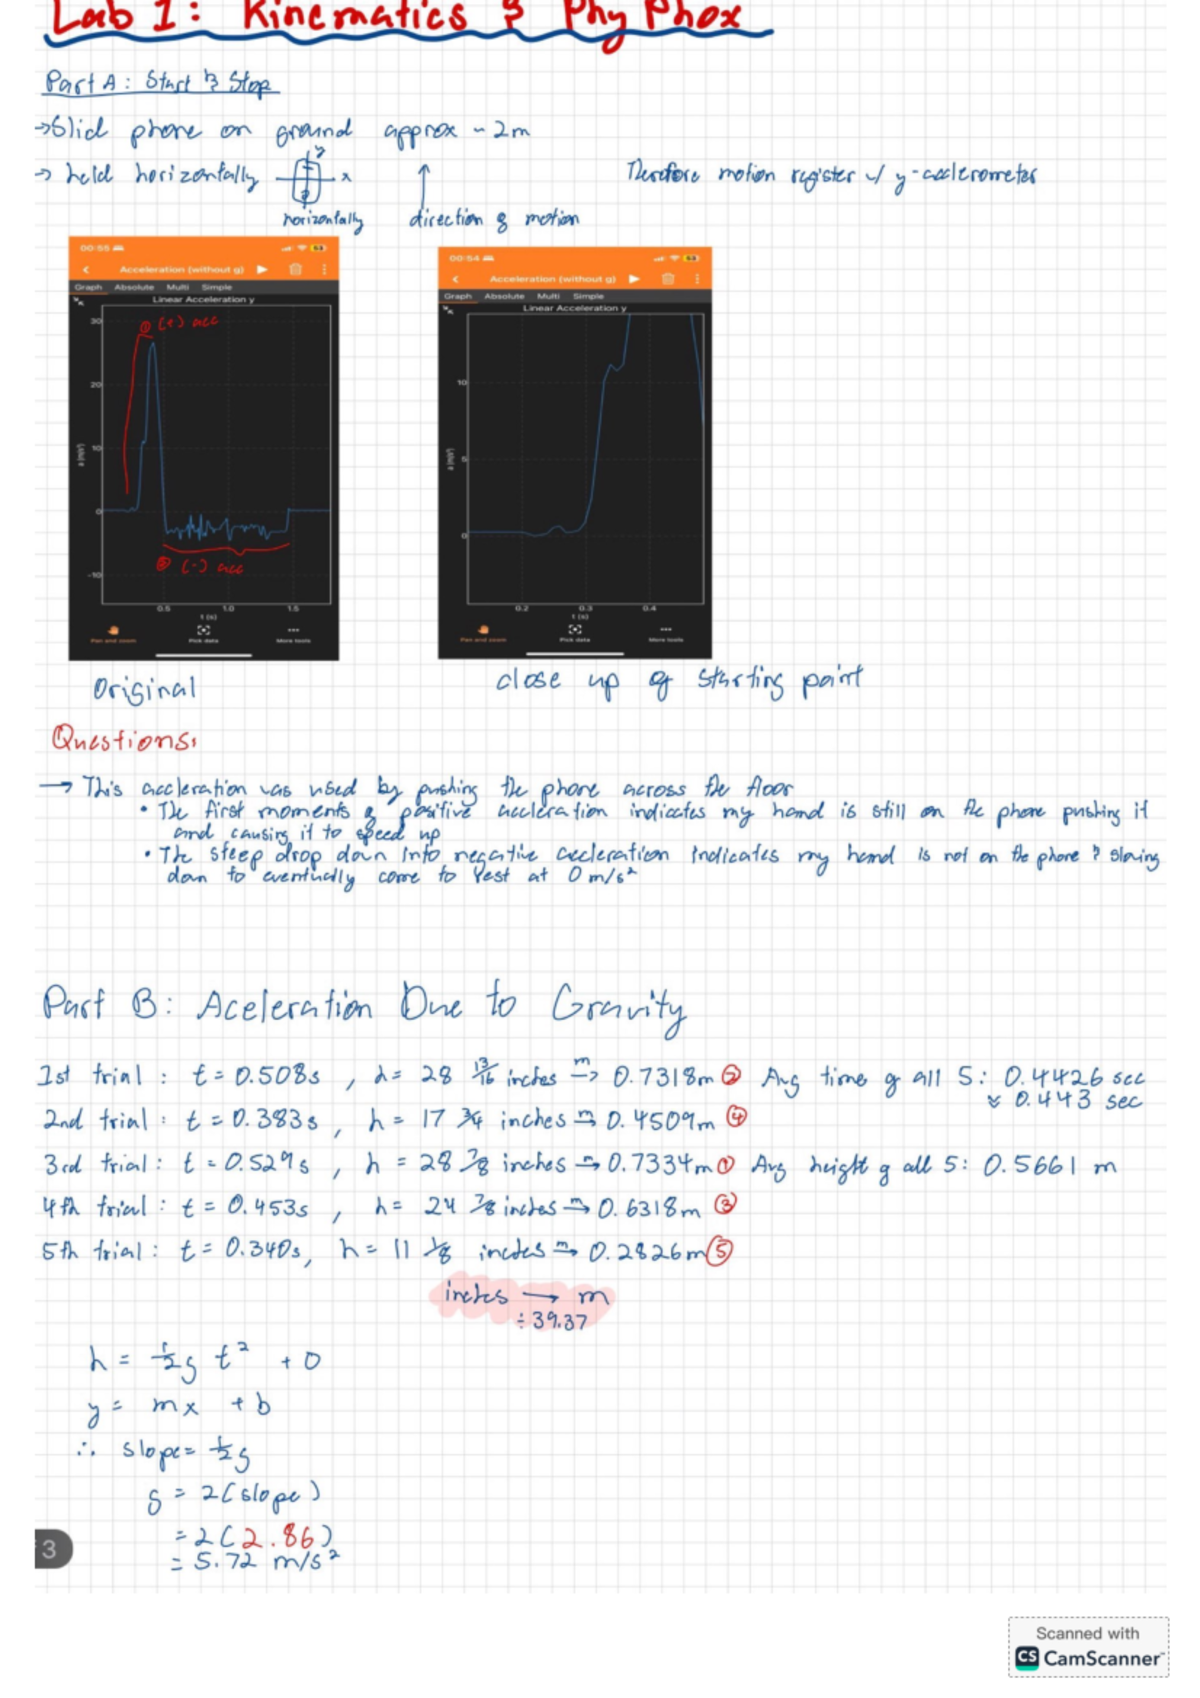 Lab 1: Kinematics & PhyPhox
Part A: Start & Stop
→ Slid phone on ground approx ~ 2m
→ held horizontally
y
x
horizontally
direction of motion
Therefore motion register w/ y-acclerometer
00:55
63
Acceleration (without g)
Graph Absolute Multi Simple
Linear Acceleration y
① (+) acc
30
20
10
0
-10
② (-) acc
0.5 1.0 1.5
t (s)
Pan and zoom Pick data More tools
Original
00:54
63
Acceleration (without g)
Graph Absolute Multi Simple
Linear Acceleration y
10
5
0
0.2 0.3 0.4
t (s)
Pan and zoom Pick data More tools
close up of starting point
Questions:
→ This accleration was used by pushing the phone across the floor
• The first moments of positive accleration indicates my hand is still on the phone pushing it
and causing it to speed up
• The steep drop down into negative accleration indicates my hand is not on the phone & slowing
down to eventually come to rest at 0 m/s²
Part B: Aceleration Due to Gravity
1st trial : t = 0.508s , h = 28 13/16 inches →m 0.7318m ②
2nd trial : t = 0.383s , h = 17 3/4 inches →m 0.4509m ④
3rd trial : t = 0.529s , h = 28 7/8 inches →m 0.7334m ①
4th trial : t = 0.453s , h = 24 7/8 inches →m 0.6318m ③
5th trial : t = 0.340s , h = 11 1/8 inches →m 0.2826m ⑤
Avg time of all 5: 0.4426 sec
≈ 0.443 sec
Avg height of all 5: 0.5661 m
inches → m
÷ 39.37
h = ½g t² + 0
y = mx + b
∴ slope = ½g
g = 2(slope)
= 2(2.86)
= 5.72 m/s²
3
Scanned with
CS CamScanner